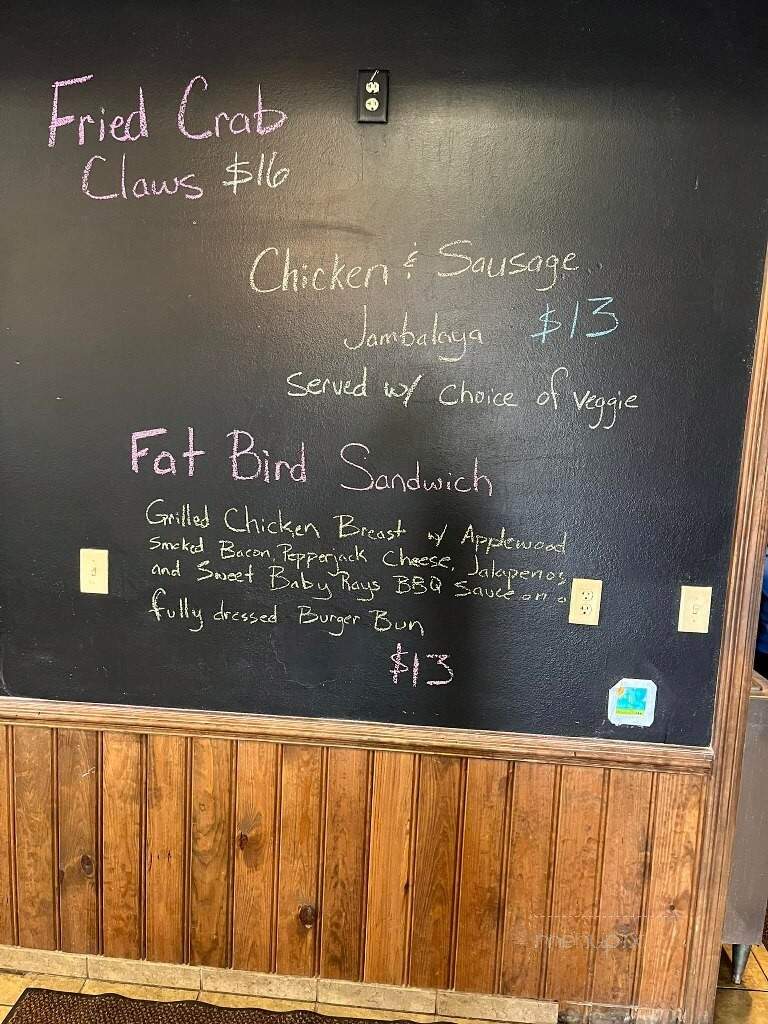 Fried Crab
Claws $16
Chicken & Sausage
Jambalaya $13
Served w/ choice of veggie
Fat Bird Sandwich
Grilled Chicken Breast w/ Applewood
Smoked Bacon, Pepperjack Cheese, Jalapenos
and Sweet Baby Rays BBQ Sauce on a
fully dressed Burger Bun
$13
menupix